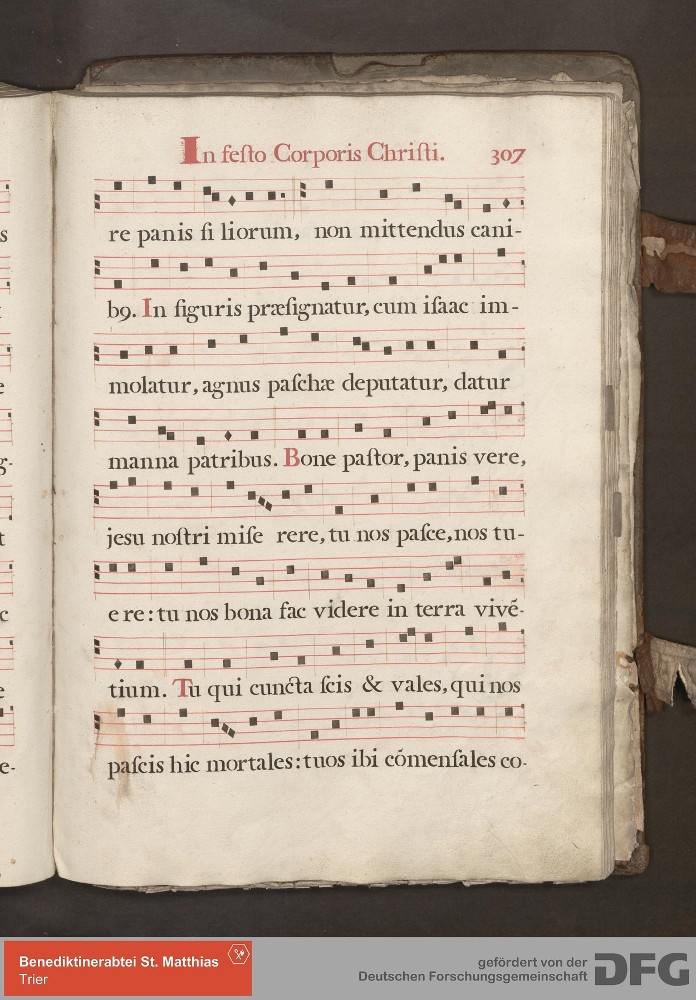 In feſto Corporis Chriſti. 307
re panis fi liorum, non mittendus cani-
b9. In figuris præſignatur, cum iſaac im-
molatur, agnus paſchæ deputatur, datur
manna patribus. Bone paſtor, panis vere,
jesu noſtri miſe rere, tu nos paſce, nos tu-
e re: tu nos bona fac videre in terra vivẽ-
tium. Tu qui cuncta ſcis & vales, qui nos
paſcis hic mortales: tuos ibi cõmenſales co-
Benediktinerabtei St. Matthias
Trier
gefördert von der
Deutschen Forschungsgemeinschaft
DFG